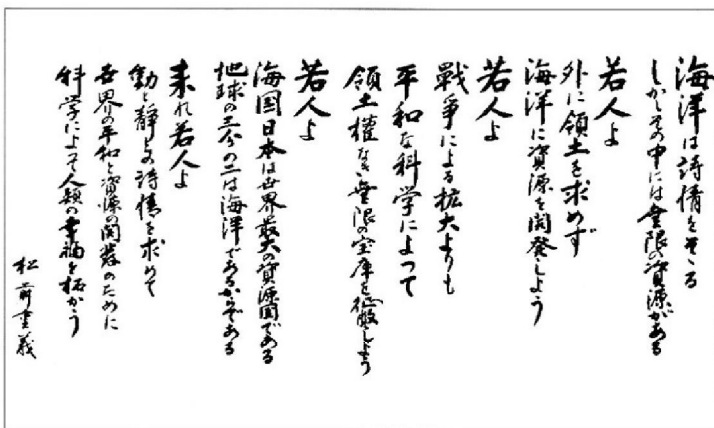 海洋は詩情をそゝる
しかしその中には無限の資源がある
若人よ
外に領土を求めず
海洋に資源を開発しよう
若人よ
戦争による拡大よりも
平和な科学によって
領土権なき無限の宝庫を
若人よ
海国日本は世界最大の資源国である
地球の三分の二は海洋であるからである
来れ若人よ
動と静との詩情を求めて
世界の平和と資源の開発のために
科学によって人類の幸福を拓かう
松前重義